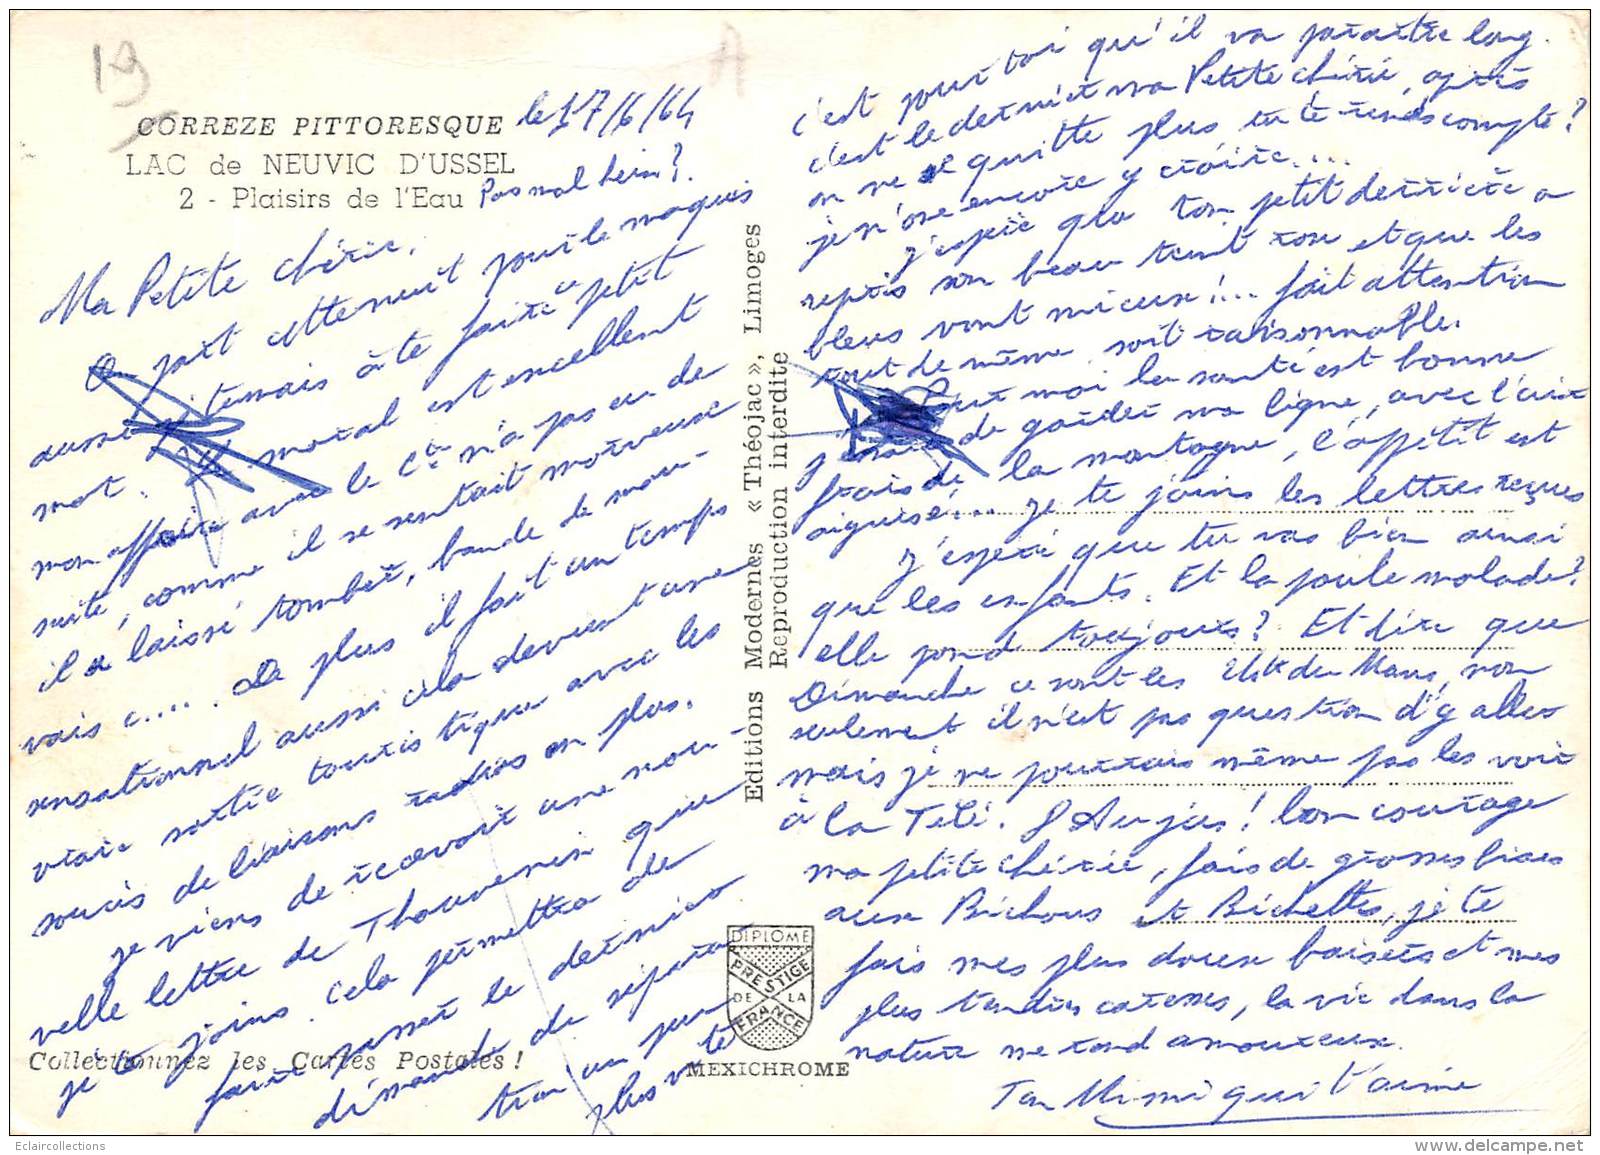 19
A
CORREZE PITTORESQUE
le 17/6/64
LAC de NEUVIC D'USSEL
2 - Plaisirs de l'Eau
Pas mal hein?
Ma Petite chérie,
On part cette nuit pour le maquis
aussi je tenais à te faire ce petit
mot. Le moral est excellent
mon affaire avec le Cne n'a pas eu de
suite, comme il se sentait morveux
il a laissé tomber, bande de mau-
vais c..... De plus il fait un temps
sensationnel aussi cela devient une
vraie sortie touristique avec les
soucis de liaisons radios en plus.
je viens de recevoir une nou-
velle lettre de Thouvenin que
je te joins. Cela permettra de
faire passer le dernier
dimanche de sépara-
tion un peu
plus vite
Collectionnez les Cartes Postales !
Editions Modernes « Théojac », Limoges
Reproduction interdite
DIPLOME
PRESTIGE
DE LA
FRANCE
MEXICHROME
c'est pour toi qu'il va paraître long.
c'est le dernier ma Petite chérie, après
on ne se quitte plus tu te rends compte?
je n'ose encore y croire....
j'espère que ton petit derrière a
repris son beau teint rose et que les
bleus vont mieux!... fait attention
tout de même, soit raisonnable.
Pour moi la santé est bonne
de garder ma ligne, avec l'air
frais de la montagne, l'appétit est
aiguisé!... je te joins les lettres reçues
J'espère que tu vas bien ainsi
que les enfants. Et la poule malade?
elle pond toujours? Et dire que
Dimanche ce sont les 24h du Mans, non
seulement il n'est pas question d'y aller
mais je ne pourrais même pas les voir
à la Télé. bon courage
ma petite chérie, fais de grosses bises
aux Bichous et Bichettes, je te
fais mes plus doux baisers et mes
plus tendres caresses, la vie dans la
nature me rend amoureux.
Ton Mimi qui t'aime
Eclaircollections
www.delcampe.net